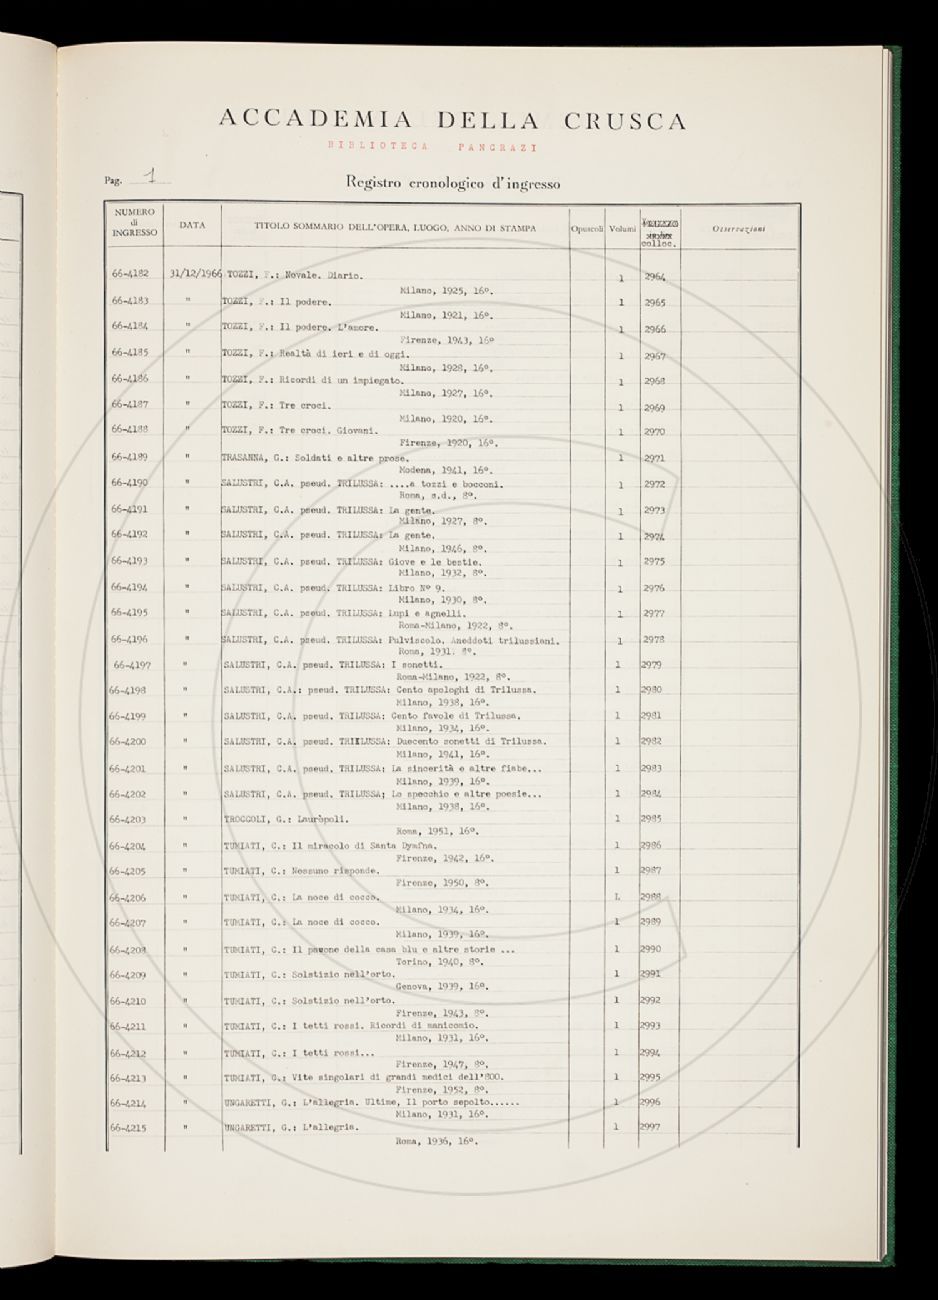 ACCADEMIA DELLA CRUSCA
BIBLIOTECA PANCRAZI
Pag. 1
Registro cronologico d'ingresso
NUMERO di INGRESSO DATA TITOLO SOMMARIO DELL'OPERA, LUOGO, ANNO DI STAMPA Opuscoli Volumi colloc. Osservazioni
66-4182 31/12/1966 TOZZI, F.: Novale. Diario. 1 2964
Milano, 1925, 16º.
66-4183 " TOZZI, F.: Il podere. 1 2965
Milano, 1921, 16º.
66-4184 " TOZZI, F.: Il podere. L'amore. 1 2966
Firenze, 1943, 16º
66-4185 " TOZZI, F.: Realtà di ieri e di oggi. 1 2967
Milano, 1928, 16º.
66-4186 " TOZZI, F.: Ricordi di un impiegato. 1 2968
Milano, 1927, 16º.
66-4187 " TOZZI, F.: Tre croci. 1 2969
Milano, 1920, 16º.
66-4188 " TOZZI, F.: Tre croci. Giovani. 1 2970
Firenze, 1920, 16º.
66-4189 " TRASANNA, G.: Soldati e altre prose. 1 2971
Modena, 1941, 16º.
66-4190 " SALUSTRI, C.A. pseud. TRILUSSA: ....a tozzi e bocconi. 1 2972
Roma, s.d., 8º.
66-4191 " SALUSTRI, C.A. pseud. TRILUSSA: La gente. 1 2973
Milano, 1927, 8º.
66-4192 " SALUSTRI, C.A. pseud. TRILUSSA: La gente. 1 2974
Milano, 1946, 8º.
66-4193 " SALUSTRI, C.A. pseud. TRILUSSA: Giove e le bestie. 1 2975
Milano, 1932, 8º.
66-4194 " SALUSTRI, C.A. pseud. TRILUSSA: Libro Nº 9. 1 2976
Milano, 1930, 8º.
66-4195 " SALUSTRI, C.A. pseud. TRILUSSA: Lupi e agnelli. 1 2977
Roma-Milano, 1922, 8º.
66-4196 " SALUSTRI, C.A. pseud. TRILUSSA: Pulviscolo. Aneddoti trilussiani. 1 2978
Roma, 1931. 8º.
66-4197 " SALUSTRI, C.A. pseud. TRILUSSA: I sonetti. 1 2979
Roma-Milano, 1922, 8º.
66-4198 " SALUSTRI, C.A.: pseud. TRILUSSA: Cento apologhi di Trilussa. 1 2980
Milano, 1938, 16º.
66-4199 " SALUSTRI, C.A. pseud. TRILUSSA: Cento favole di Trilussa. 1 2981
Milano, 1934, 16º.
66-4200 " SALUSTRI, C.A. pseud. TRILUSSA: Duecento sonetti di Trilussa. 1 2982
Milano, 1941, 16º.
66-4201 " SALUSTRI, C.A. pseud. TRILUSSA: La sincerità e altre fiabe... 1 2983
Milano, 1939, 16º.
66-4202 " SALUSTRI, C.A. pseud. TRILUSSA; Lo specchio e altre poesie... 1 2984
Milano, 1938, 16º.
66-4203 " TROCCOLI, G.: Lauròpoli. 1 2985
Roma, 1951, 16º.
66-4204 " TUMIATI, C.: Il miracolo di Santa Dymfna. 1 2986
Firenze, 1942, 16º.
66-4205 " TUMIATI, C.: Nessuno risponde. 1 2987
Firenze, 1950, 8º.
66-4206 " TUMIATI, C.: La noce di cocco. 1 2988
Milano, 1934, 16º.
66-4207 " TUMIATI, C.: La noce di cocco. 1 2989
Milano, 1939, 16º.
66-4208 " TUMIATI, C.: Il pavone della casa blu e altre storie ... 1 2990
Torino, 1940, 8º.
66-4209 " TUMIATI, C.: Solstizio nell'orto. 1 2991
Genova, 1939, 16º.
66-4210 " TUMIATI, C.: Solstizio nell'orto. 1 2992
Firenze, 1943, 8º.
66-4211 " TUMIATI, C.: I tetti rossi. Ricordi di manicomio. 1 2993
Milano, 1931, 16º.
66-4212 " TUMIATI, C.: I tetti rossi... 1 2994
Firenze, 1947, 8º.
66-4213 " TUMIATI, G.: Vite singolari di grandi medici dell'800. 1 2995
Firenze, 1952, 8º.
66-4214 " UNGARETTI, G.: L'allegria. Ultime, Il porto sepolto...... 1 2996
Milano, 1931, 16º.
66-4215 " UNGARETTI, G.: L'allegria. 1 2997
Roma, 1936, 16º.